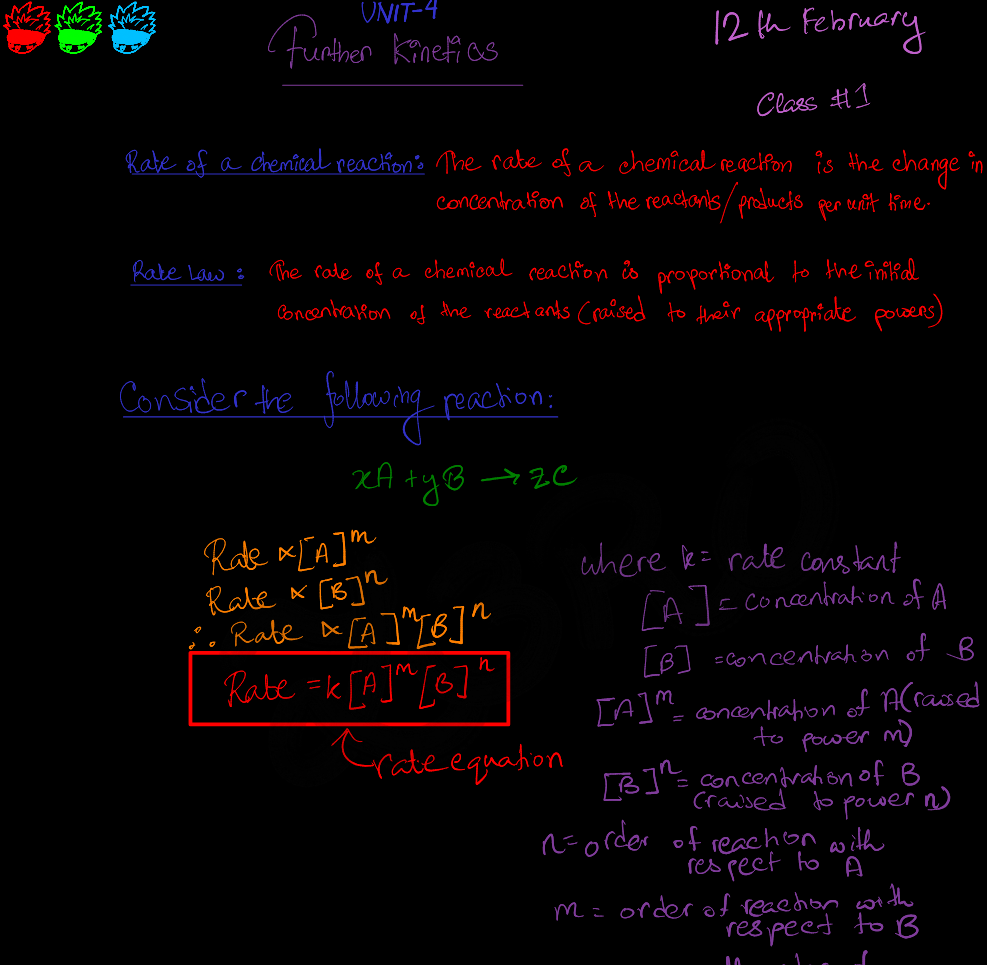 UNIT-4
Further Kinetics
12th February
Class #1
Rate of a chemical reaction: The rate of a chemical reaction is the change in
concentration of the reactants/products per unit time.
Rate Law: The rate of a chemical reaction is proportional to the initial
concentration of the reactants (raised to their appropriate powers)
Consider the following reaction:
xA + yB → zC
Rate ∝ [A]^m
Rate ∝ [B]^n
∴ Rate ∝ [A]^m [B]^n
Rate = k[A]^m [B]^n
rate equation
where k = rate constant
[A] = concentration of A
[B] = concentration of B
[A]^m = concentration of A (raised
to power m)
[B]^n = concentration of B
(raised to power n)
n = order of reaction with
respect to A
m = order of reaction with
respect to B